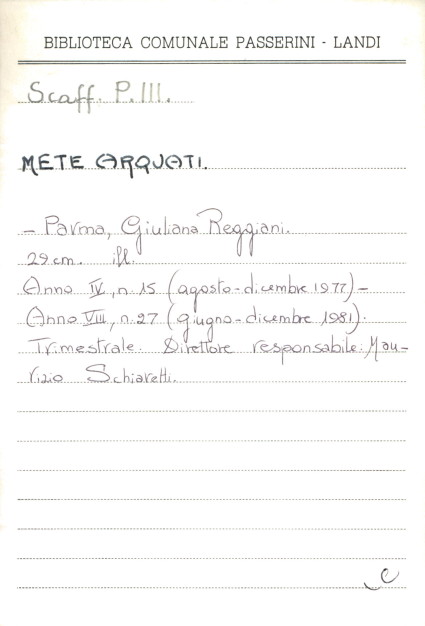 BIBLIOTECA COMUNALE PASSERINI - LANDI
Scaff. P.III.
METE ARQUATI.
- Parma, Giuliana Reggiani.
29 cm. ill.
Anno IV, n. 15 (agosto - dicembre 1977) -
Anno VIII, n. 27 (giugno - dicembre 1981).
Trimestrale. Direttore responsabile: Mau-
rizio Schiaretti.